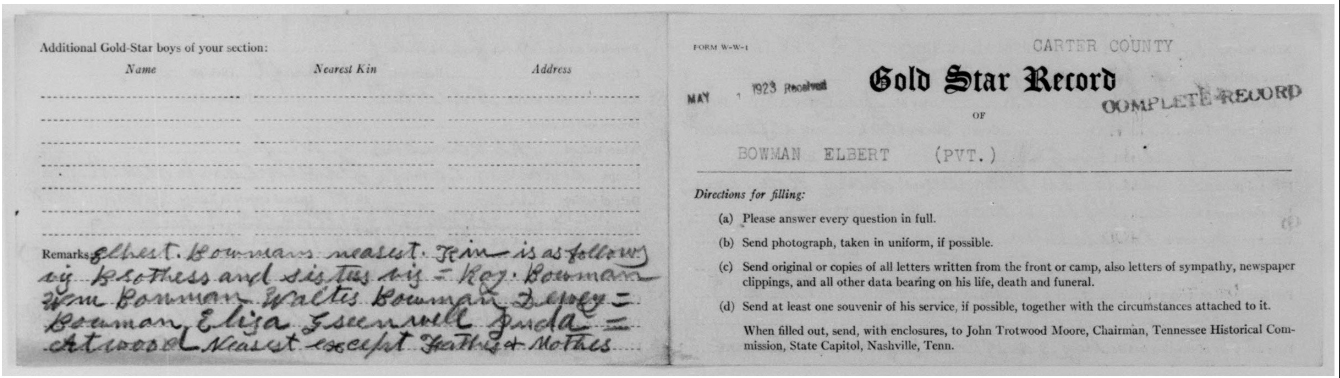 Additional Gold-Star boys of your section:
Name Nearest Kin Address
Remarks Elbert. Bowmans nearest. Kin is as follows
viz Brothers and sisters viz = Roy. Bowman
Wm Bowman Walter Bowman Dewey =
Bowman, Eliza Greenwell Juda =
Atwood Nearest except Father & Mother
FORM W-W-1
CARTER COUNTY
MAY , 1923 Received
Gold Star Record
COMPLETE RECORD
OF
BOWMAN ELBERT (PVT.)
Directions for filling:
(a) Please answer every question in full.
(b) Send photograph, taken in uniform, if possible.
(c) Send original or copies of all letters written from the front or camp, also letters of sympathy, newspaper
clippings, and all other data bearing on his life, death and funeral.
(d) Send at least one souvenir of his service, if possible, together with the circumstances attached to it.
When filled out, send, with enclosures, to John Trotwood Moore, Chairman, Tennessee Historical Com-
mission, State Capitol, Nashville, Tenn.